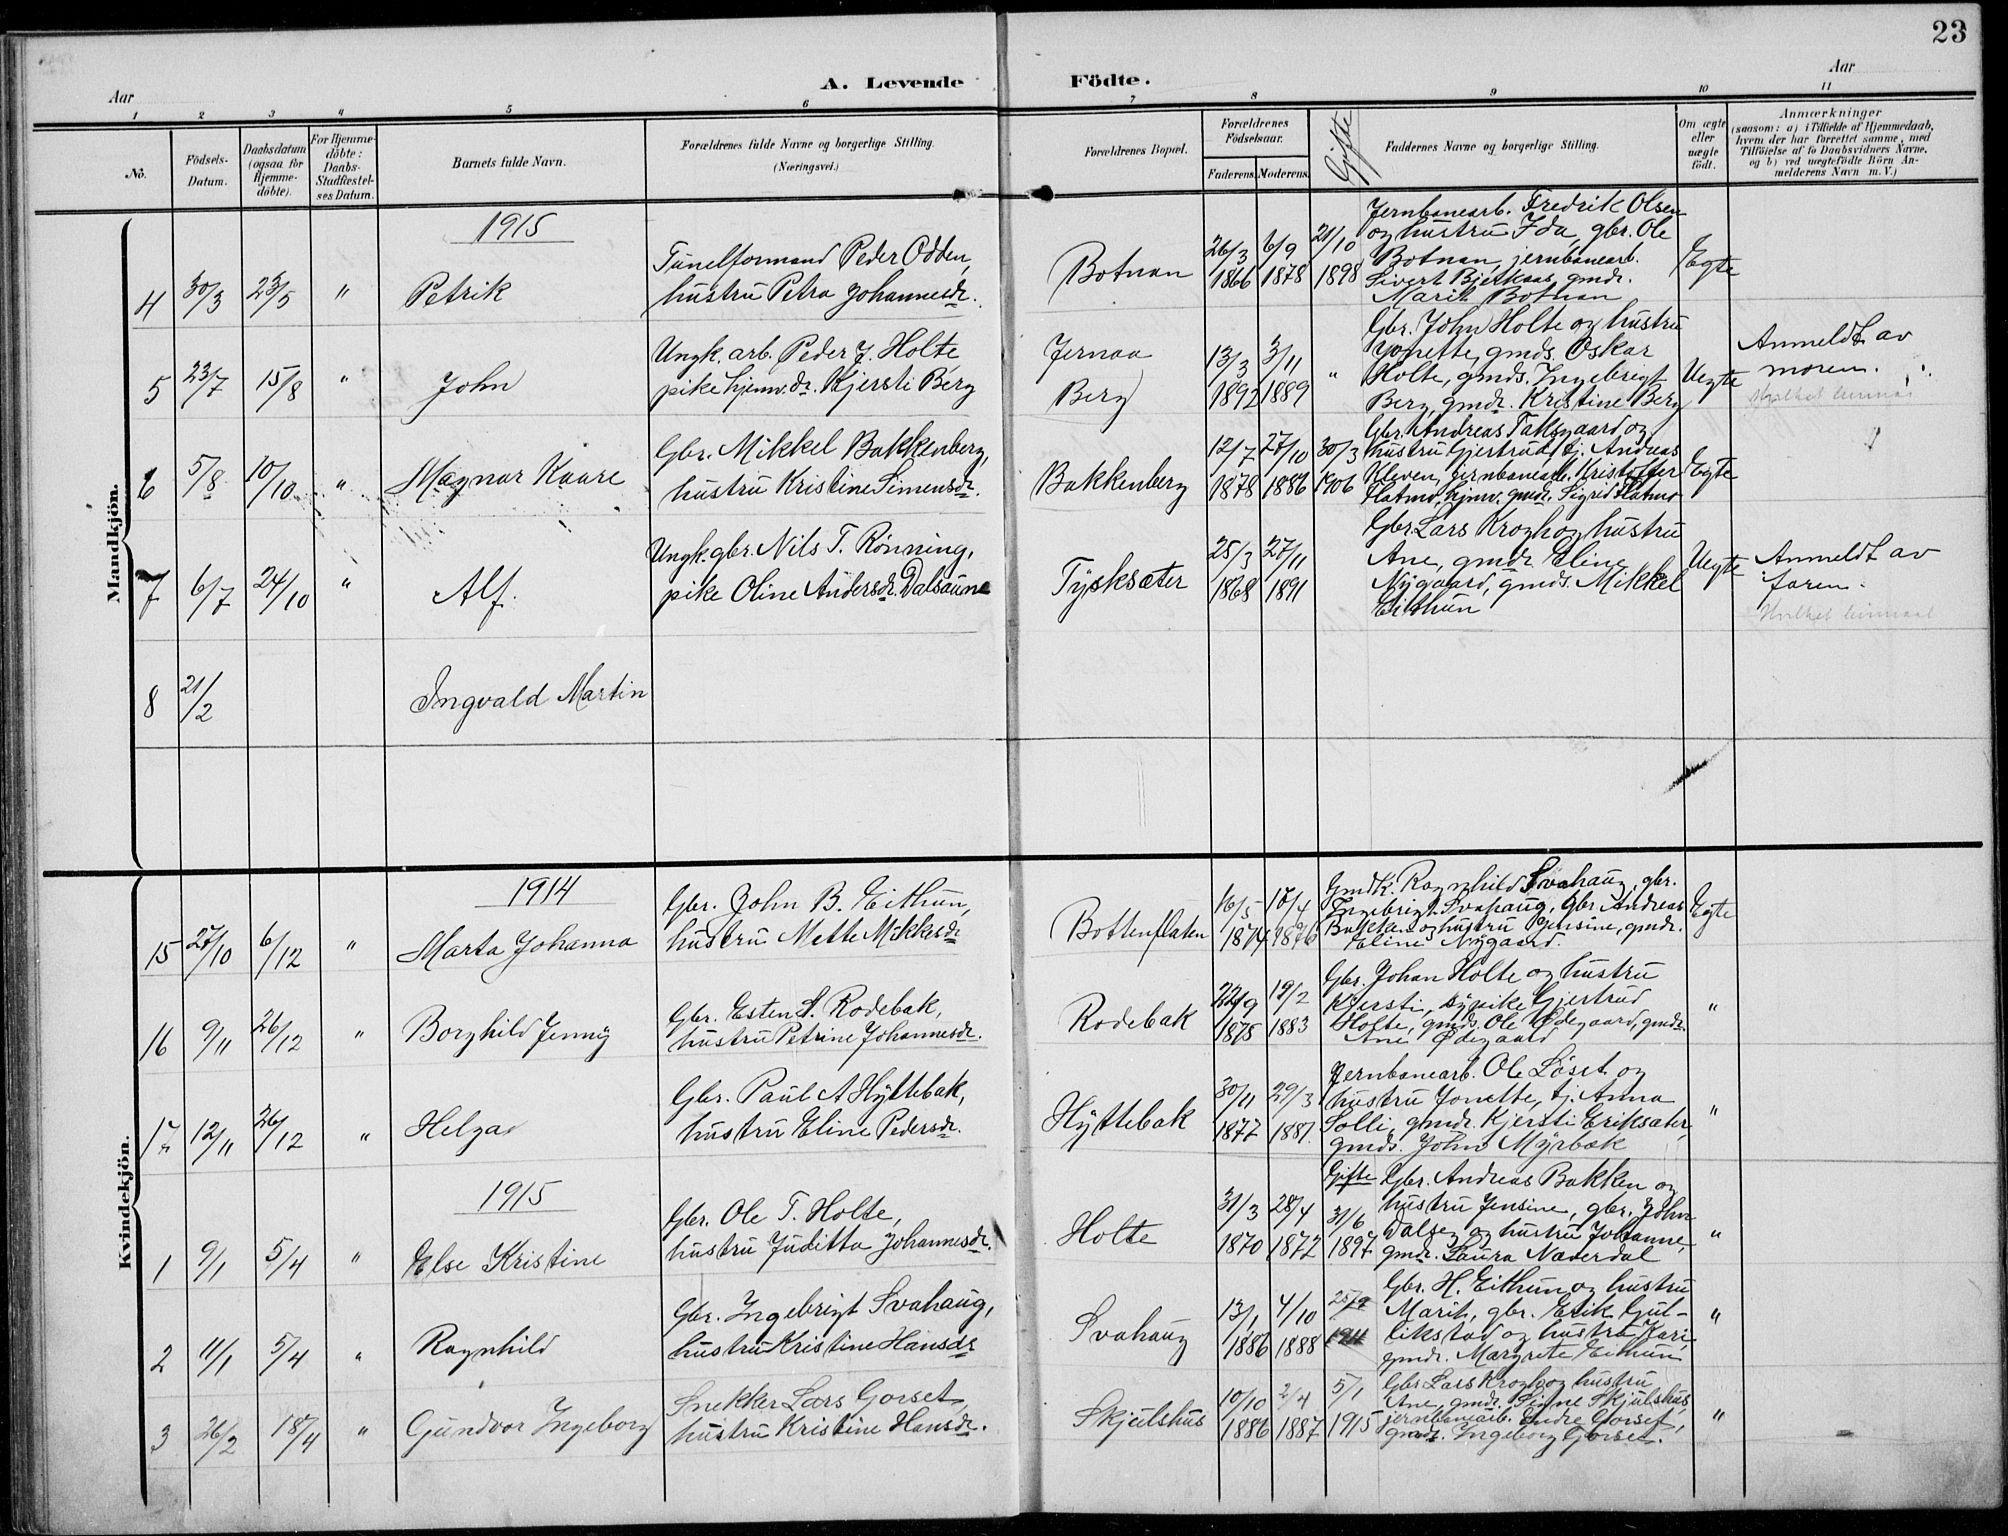 23
A. Levende Födte.
Aar
Aar
1 2 3 4 5 6 7 8 9 10 11
No.
Födsels-Datum.
Daabsdatum (ogsaa for Hjemme-döbte).
For Hjemme-döbte: Daabs-Stadfæstel-ses Datum.
Barnets fulde Navn.
Forældrenes fulde Navne og borgerlige Stilling. (Næringsvei.)
Forældrenes Bopæl.
Forældrenes Födselsaar.
Faderens. Moderens.
Gifte
Faddernes Navne og borgerlige Stilling.
Om ægte eller uægte födt.
Anmærkninger
(saasom: a) i Tilfælde af Hjemmedaab,
hvem der har forrettet samme, med
Tilföielse af to Daabsvidners Navne,
og b) ved uægtefödte Börn An-
melderens Navn m. V.)
Mandkjön.
1915
4 30/3 23/5 " Petrik
Tunelformand Peder Odden,
hustru Petra Johannesdr.
Botnan
26/3 1866 6/9 1878 21/10 1898
Jernbanearb. Fredrik Olsen
og hustru Ida, gbr. Ole
Botnan, jernbanearb.
Sivert Bjerkaas, gmdr.
Marit Botnan
Egte
5 23/7 15/8 " John
Ungk. arb. Peder J. Holte
pike hjemv. dr. Kjersti Berg
Jernaa
Berg
13/3 1892 3/11 1889 "
Gbr. John Holte og hustru
Jonette, gmds. Oskar
Holte, gmds. Ingebrigt
Berg, gmdr. Kristine Berg
Uegte
Anmeldt av
moren.
6 5/8 10/10 " Magnar Kaare
Gbr. Mikkel Bakkenberg,
hustru Kristine Simensdr.
Bakkenberg
12/7 1878 27/10 1886 30/3 1906
Gbr. Andreas Talsgaard og
hustru Gjertrud, tj. Andreas
Kleven, jernbanearb. Kristoffer
Flatmo, hjmv. gmdr. Sigrid Flatmo
Egte
7 6/7 24/10 " Alf.
Ungk. gbr. Nils T. Rønning,
pike Oline Andersdr. Dalsaune
Tysksæter
25/3 1868 27/11 1891
Gbr. Lars Krogh og hustru
Ane, gmdr. Eline
Nygaard, gmds. Mikkel
Eithun
Uegte
Anmeldt av
faren.
8 21/2 Ingvald Martin
Kvindekjön.
1914
15 27/10 6/12 " Marta Johanna
Gbr. John B. Eithun,
hustru Mette Mikkelsdr.
Bottenflaten
16/5 1874 17/4 1876
Gmdk. Ragnhild Svahaug, gbr.
Ingebrigt Svahaug, Gbr. Andreas
Bakken og hustru Jensine, gmdr.
Eline Nygaard.
Egte
16 9/11 26/12 " Borghild Jenny
Gbr. Esten S. Rodebak,
hustru Petrine Johannesdr.
Rodebak
22/9 1878 19/2 1883
Gbr. Johan Holte og hustru
Kjersti, sypike Gjertrud
Holte, gmds. Ole Ødegaard, gmdr.
Ane Ødegaard
"
17 12/11 26/12 " Helga
Gbr. Paul A Hyttebak,
hustru Eline Pedersdr.
Hyttebak
30/11 1877 29/3 1881.
Jernbanearb. Ole Løset og
hustru Jonette, tj. Anna
Solli, gmdr. Kjersti Eriksæter,
gmds. John Myrbæk
"
1915
1 9/1 5/4 " Else Kristine
Gbr. Ole T. Holte,
hustru Juditta Johannesdr.
Holte
31/3 1870 28/4 1872 Gifte 31/6 1897
Gbr. Andreas Bakken og
hustru Jensine, gbr. John
Dalseg og hustru Johanne,
gmdr. Laura Næverdal
"
2 11/1 5/4 " Ragnhild
Gbr. Ingebrigt Svahaug,
hustru Kristine Hansdr
Svahaug
13/1 1886 4/10 1888 1911
Gbr. H. Eithun og hustru
Marit, gbr. Erik Gul-
likstad og hustru Kari,
gmdr. Margrete Eithun
"
3 26/2 18/4 " Gundvor Ingeborg
Snekker Lars Gorset,
hustru Kristine Hansdr.
Skjulshus
10/10 1886 2/4 1887 5/1 1915
Gbr. Lars Krogh og hustru
Ane, gmdr. Signe Skjulshus,
jernbanearb. Endre Gorset,
gmdr. Ingeborg Gorset.
"